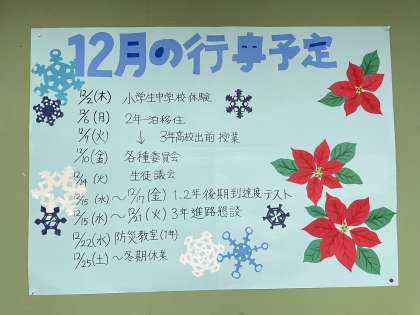 12月の行事予定
12/2(木) 小学生中学校体験
12/6(月) 2年一泊移住
12/7(火) ↓ 3年高校出前授業
12/10(金) 各種委員会
12/14(火) 生徒議会
12/15(水)～12/17(金) 1.2年後期到達度テスト
12/15(水)～12/21(火) 3年進路懇談
12/22(水) 防災教室(1年)
12/25(土)～冬期休業